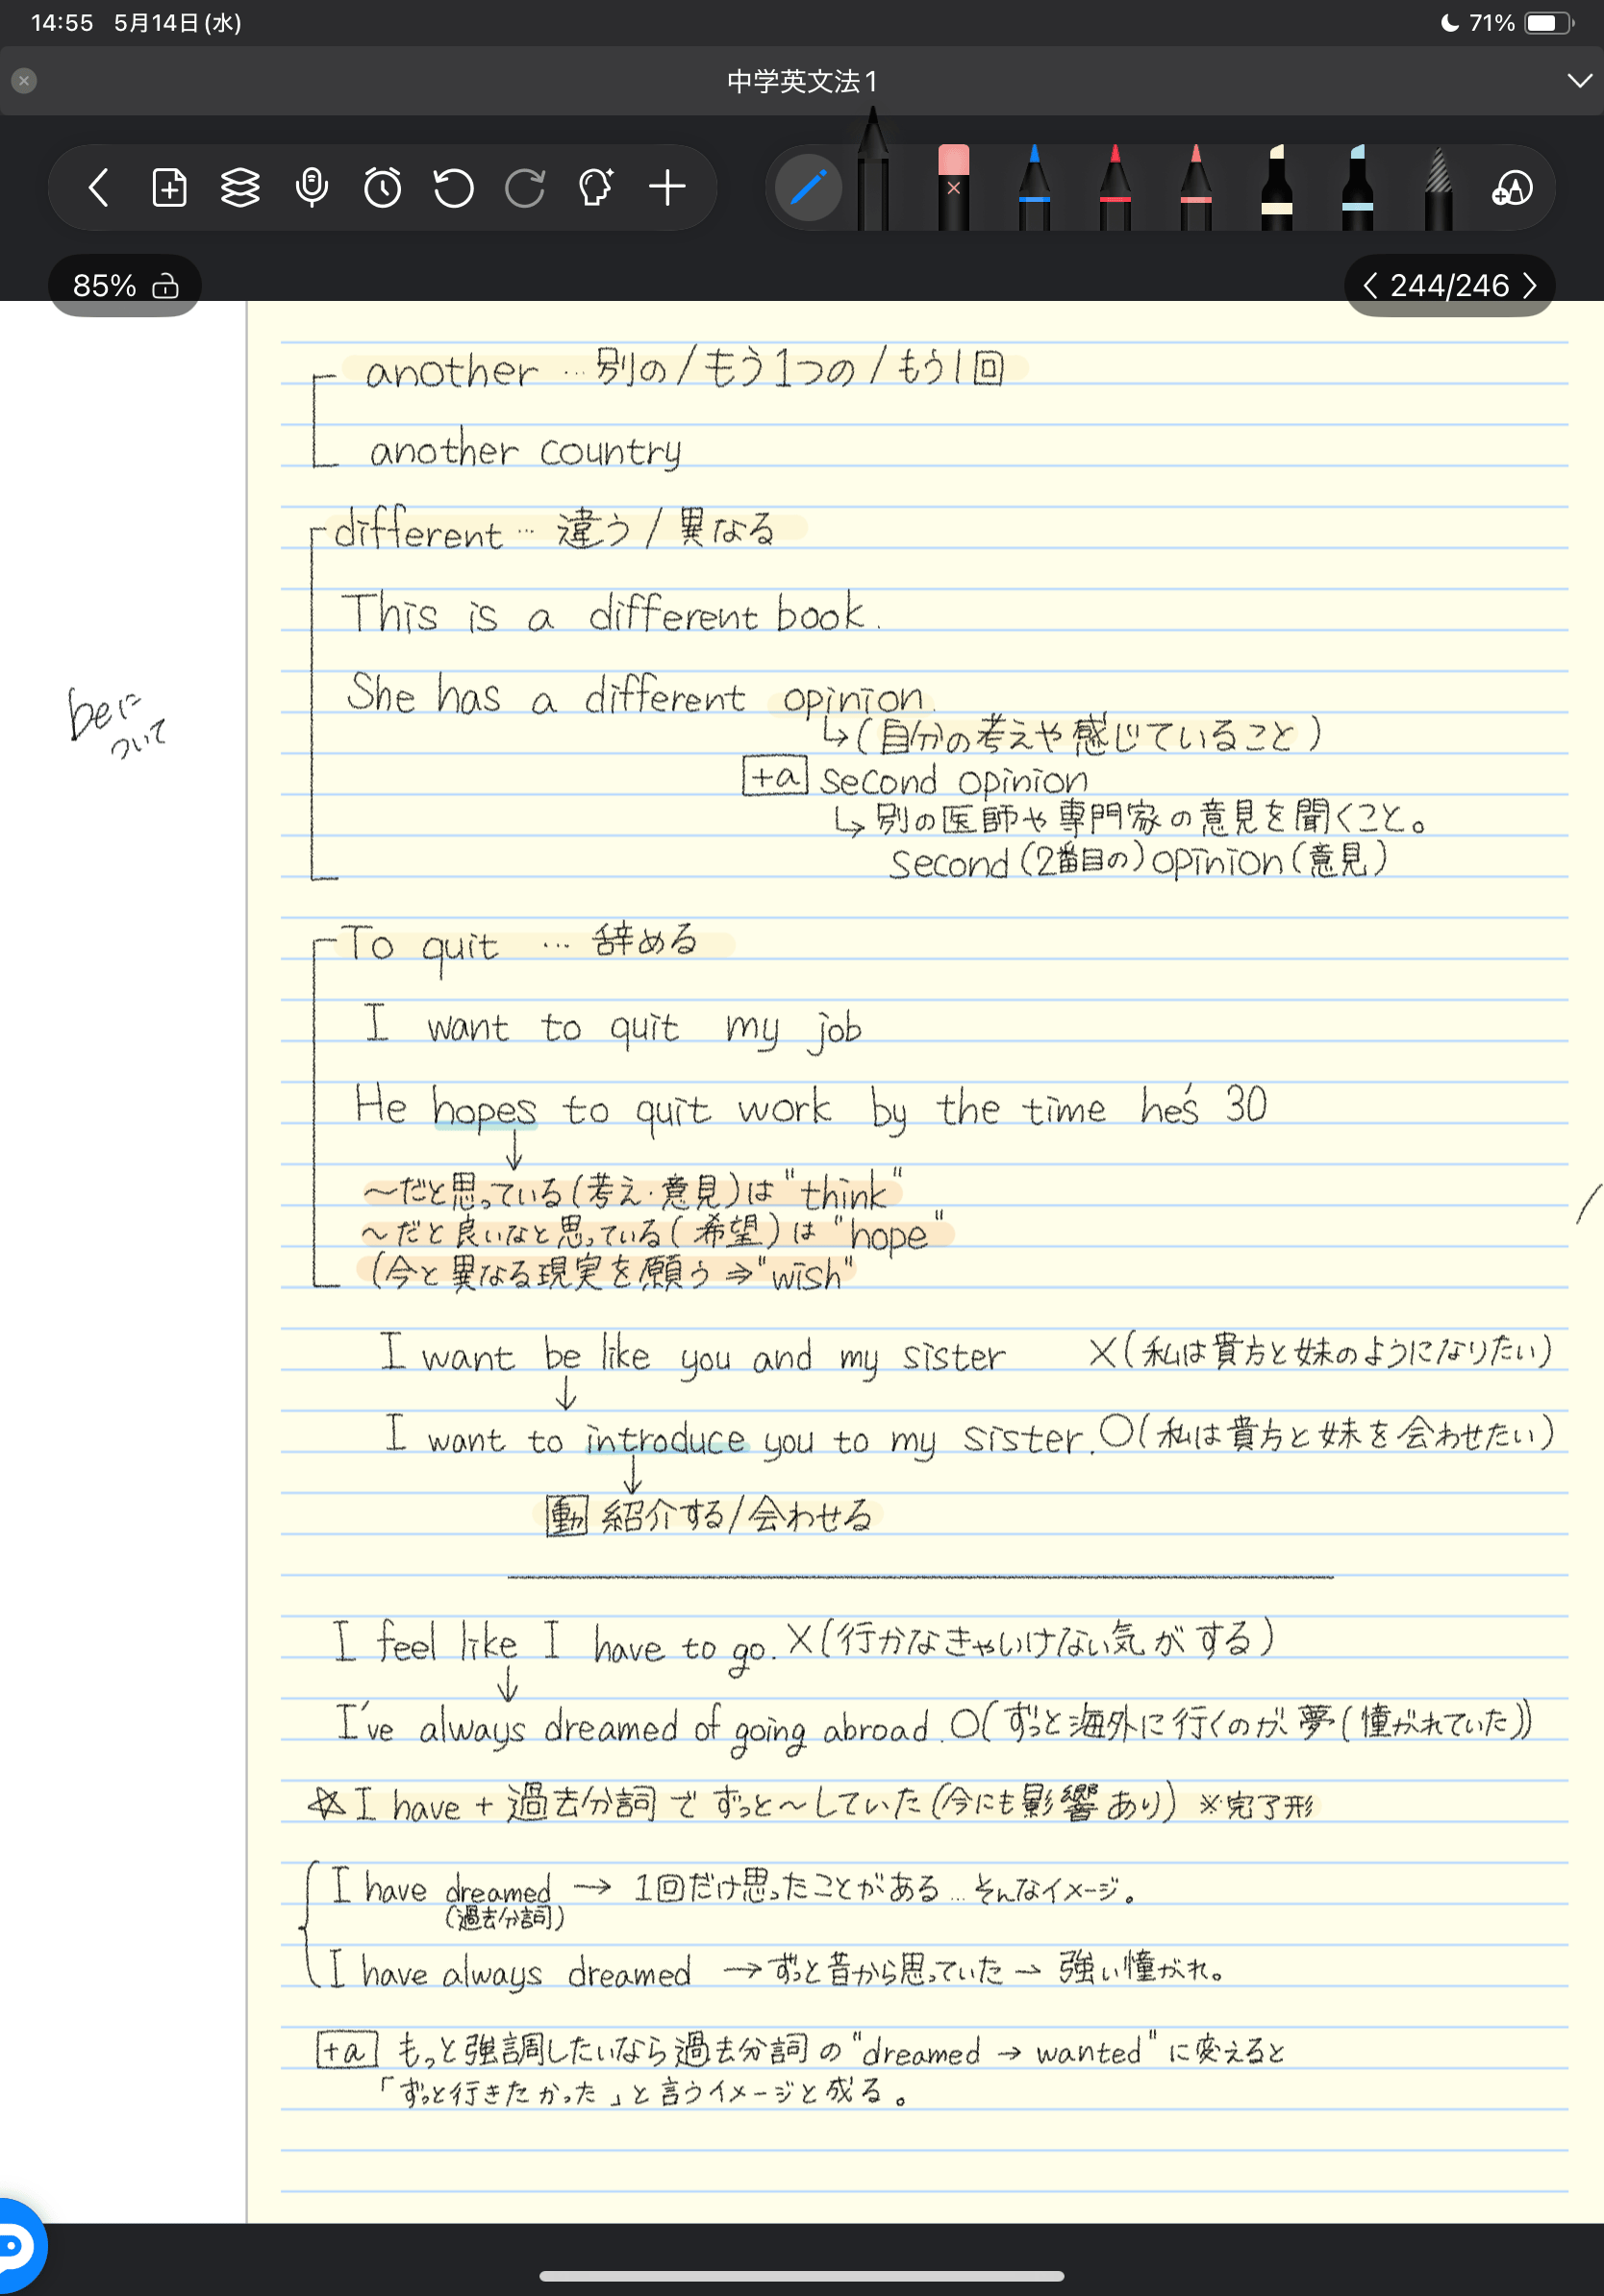 14:55 5月14日(水)
71%
中学英文法1
85%
244/246
another … 別の/もう1つの/もう1回
another country
different … 違う/異なる
This is a different book.
She has a different opinion.
↳(自分の考えや感じていること)
+a second opinion
↳別の医師や専門家の意見を聞くこと。
second(2番目の)opinion(意見)
beに
ついて
To quit … 辞める
I want to quit my job
He hopes to quit work by the time he's 30
↓
〜だと思っている(考え・意見)は"think"
〜だと良いなと思っている(希望)は"hope"
(今と異なる現実を願う⇒"wish"
I want be like you and my sister ×(私は貴方と妹のようになりたい)
↓
I want to introduce you to my sister.○(私は貴方と妹を会わせたい)
↓
動 紹介する/会わせる
I feel like I have to go.×(行かなきゃいけない気がする)
↓
I've always dreamed of going abroad.○(ずっと海外に行くのが夢(憧がれていた))
☆I have+過去分詞でずっと〜していた(今にも影響あり)※完了形
I have dreamed → 1回だけ思ったことがある…そんなイメージ。
(過去分詞)
I have always dreamed →ずっと昔から思っていた→強い憧がれ。
+a もっと強調したいなら過去分詞の"dreamed→wanted"に変えると
「ずっと行きたかった」と言うイメージと成る。